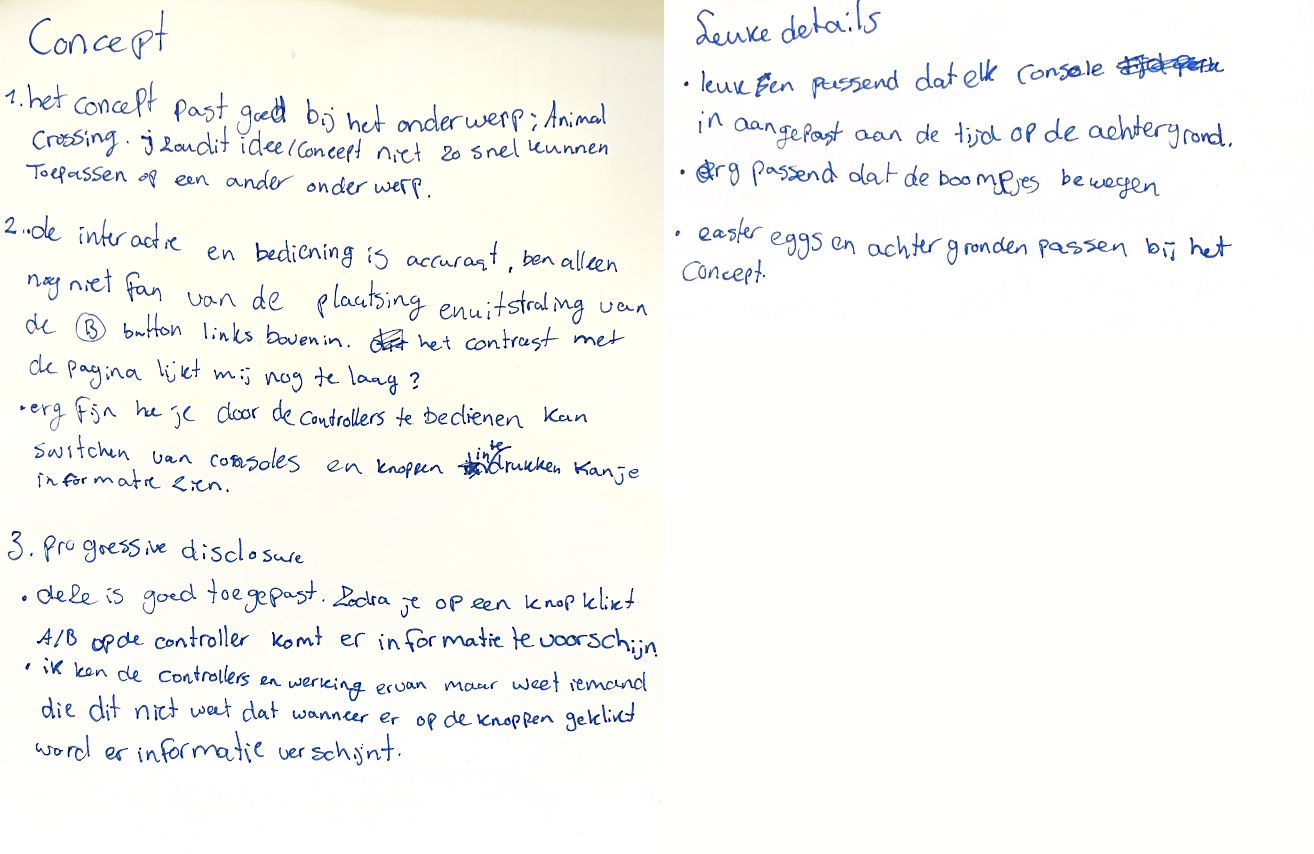 Concept
1. het concept past goed bij het onderwerp; Animal
Crossing. j zou dit idee/concept niet zo snel kunnen
Toepassen op een ander onderwerp.
2.. de interactie en bediening is accuraat, ben alleen
nog niet fan van de plaatsing en uitstraling van
de B button links bovenin. het contrast met
de pagina lijkt mij nog te laag?
• erg fijn hoe je door de controllers te bedienen kan
switchen van consoles en knoppen in te drukken kan je
informatie zien.
3. progressive disclosure
• deze is goed toegepast. Zodra je op een knop klikt
A/B op de controller komt er informatie tevoorschijn.
• ik ken de controllers en werking ervan maar weet iemand
die dit niet weet dat wanneer er op de knoppen geklikt
word er informatie verschijnt.
Leuke details
• leuk En passend dat elk console
in aangepast aan de tijd op de achtergrond.
• erg passend dat de boompjes bewegen
• easter eggs en achtergronden passen bij het
Concept.